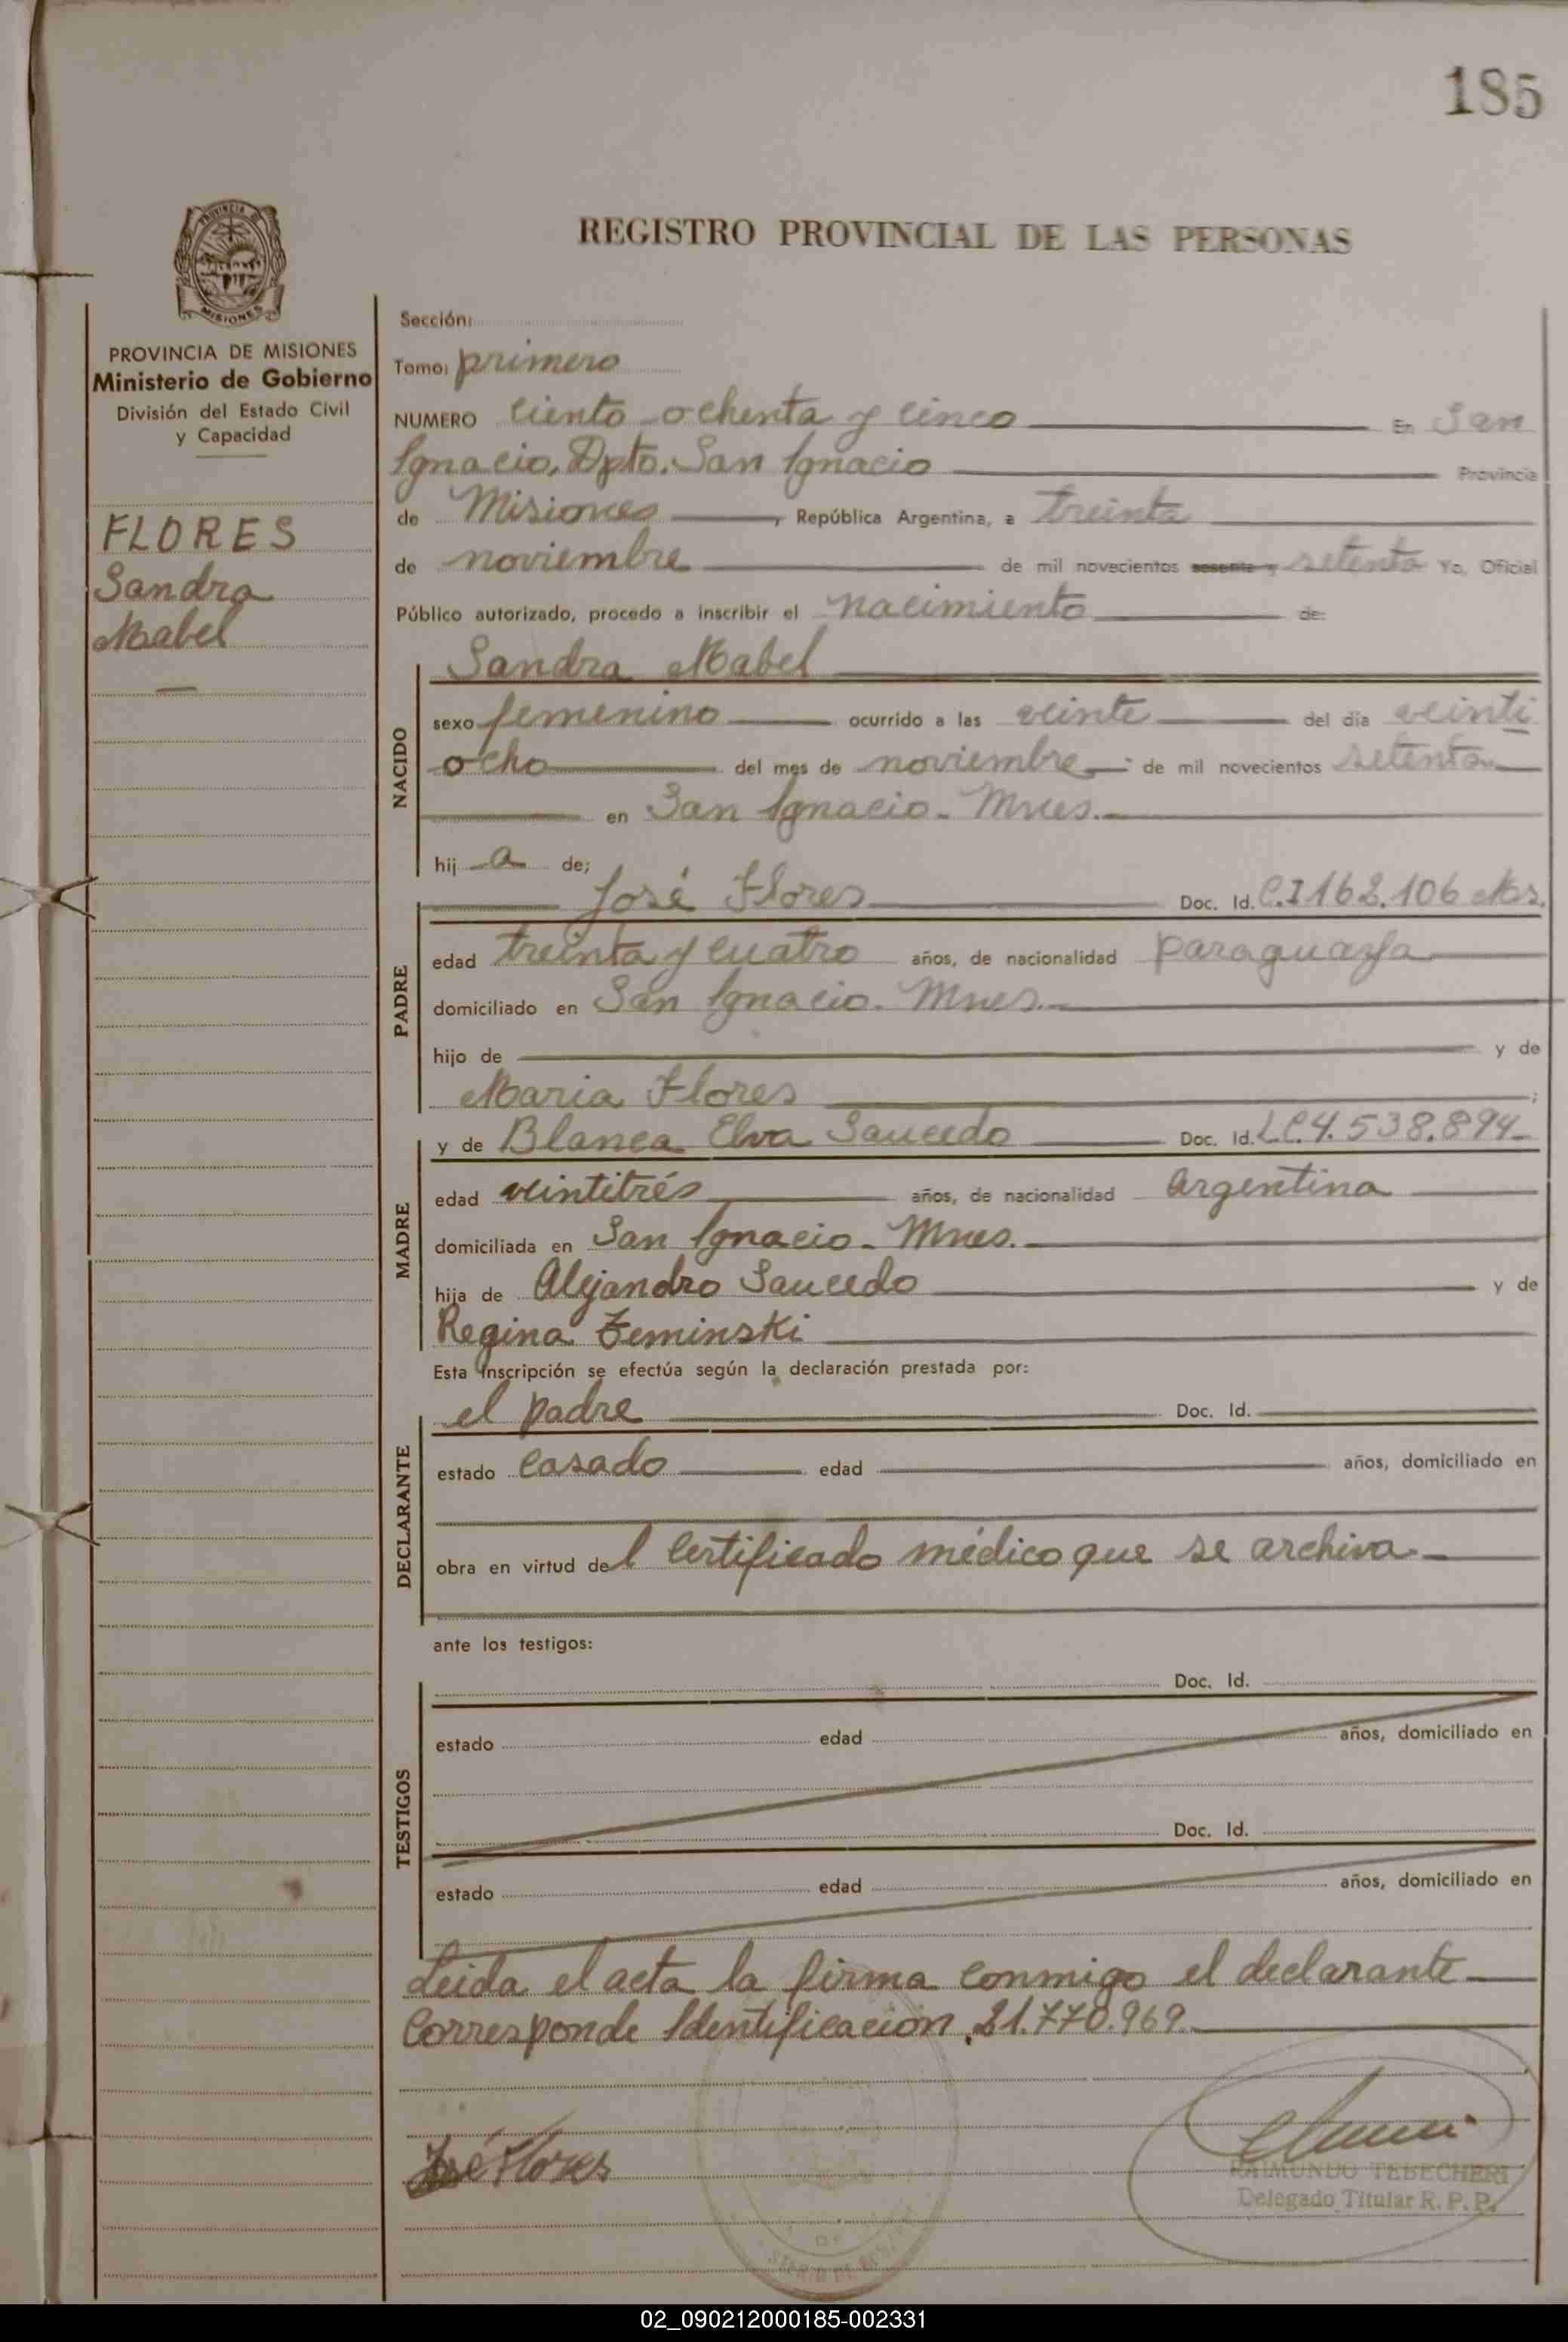 185
REGISTRO PROVINCIAL DE LAS PERSONAS
PROVINCIA DE
MISIONES
PROVINCIA DE MISIONES
Ministerio de Gobierno
División del Estado Civil
y Capacidad
FLORES
Sandra
Mabel
Sección:
Tomo: primero
NUMERO ciento ochenta y cinco En San
Ignacio, Dpto. San Ignacio Provincia
de Misiones, República Argentina, a treinta
de noviembre de mil novecientos sesenta y setenta Yo, Oficial
Público autorizado, procedo a inscribir el nacimiento de:
NACIDO
Sandra Mabel
sexo femenino ocurrido a las veinte del día veinti
ocho del mes de noviembre de mil novecientos setenta
en San Ignacio - Mnes.
hij a de;
PADRE
José Flores Doc. Id. C.I 162.106 Mns.
edad treinta y cuatro años, de nacionalidad paraguaya
domiciliado en San Ignacio. Mnes.
hijo de y de
Maria Flores ;
MADRE
y de Blanca Elva Saucedo Doc. Id. L.C. 4.538.894
edad veintitrés años, de nacionalidad Argentina
domiciliada en San Ignacio - Mnes.
hija de Alejandro Saucedo y de
Regina Zeminski
Esta inscripción se efectúa según la declaración prestada por:
DECLARANTE
el padre Doc. Id.
estado casado edad años, domiciliado en
obra en virtud del Certificado médico que se archiva.
ante los testigos:
TESTIGOS
Doc. Id.
estado edad años, domiciliado en
Doc. Id.
estado edad años, domiciliado en
Leida el acta la firma conmigo el declarante
Corresponde Identificación 21.770.969.
José Flores
RAIMUNDO TEBECHERI
Delegado Titular R. P. P.
02_090212000185-002331